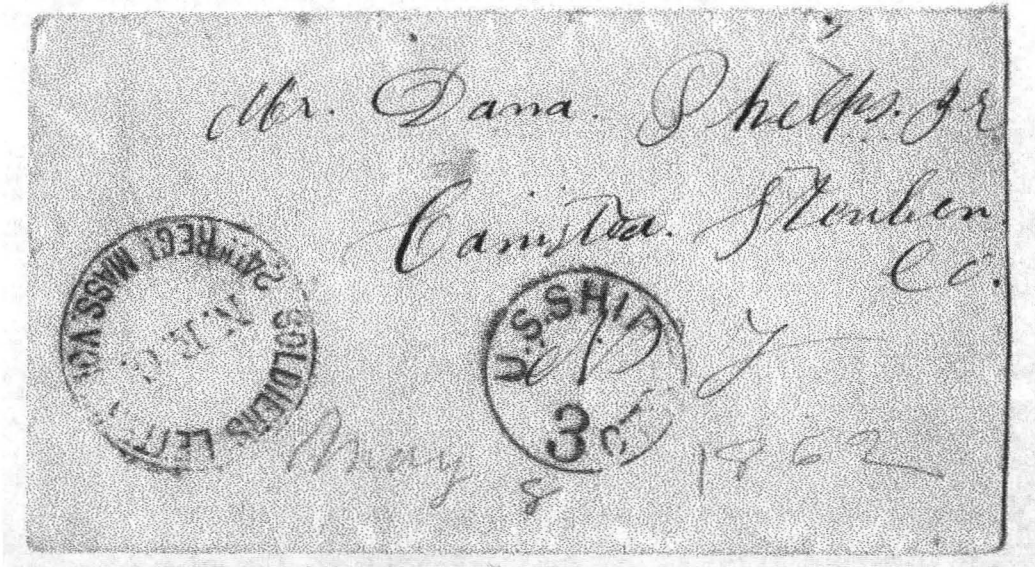 Mr. Dana. Phelps. Jr
Canistoa. Steuben
Co.
N Y
SOLDIERS LETTER
24TH REGT MASS. VOL
U.S. SHIP
3 CTS
May 8 1862